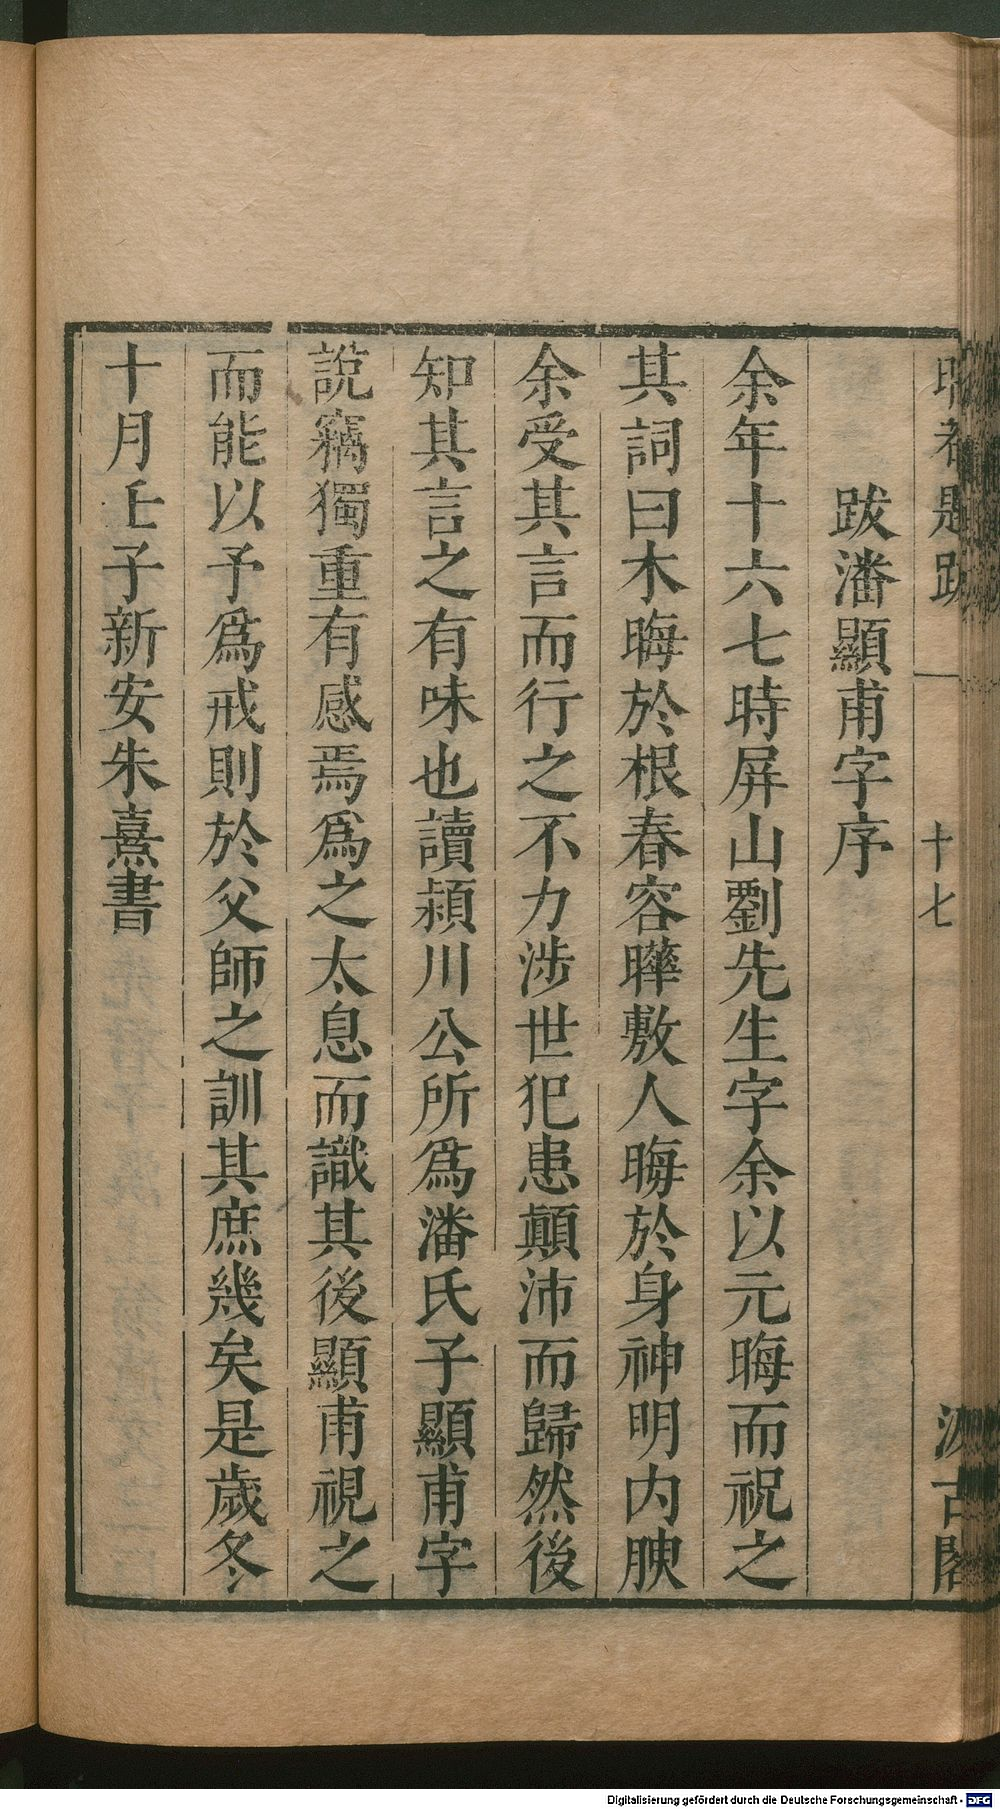 晦菴題跋
十七
汲古閣
跋潘顯甫字序
余年十六七時屏山劉先生字余以元晦而祝之
其詞曰木晦於根春容曄敷人晦於身神明内腴
余受其言而行之不力涉世犯患顛沛而歸然後
知其言之有味也讀潁川公所爲潘氏子顯甫字
說竊獨重有感焉爲之太息而識其後顯甫視之
而能以予爲戒則於父師之訓其庶幾矣是歲冬
十月壬子新安朱熹書
Digitalisierung gefördert durch die Deutsche Forschungsgemeinschaft - DFG